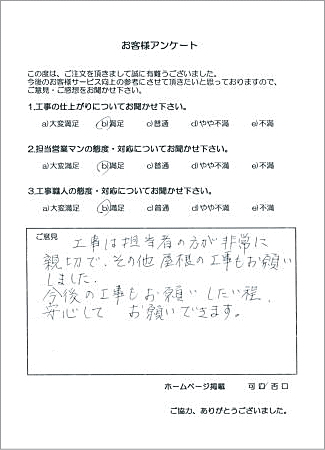 お客様アンケート
この度は、ご注文を頂きまして誠に有難うございました。
今後のお客様サービス向上の参考にさせて頂きたいと思っておりますので、
ご意見・ご感想をお聞かせ下さい。
1.工事の仕上がりについてお聞かせ下さい。
a)大変満足 b)満足 c)普通 d)やや不満 e)不満
2.担当営業マンの態度・対応についてお聞かせ下さい。
a)大変満足 b)満足 c)普通 d)やや不満 e)不満
3.工事職人の態度・対応についてお聞かせ下さい。
a)大変満足 b)満足 c)普通 d)やや不満 e)不満
ご意見
工事は担当者の方が非常に
親切で、その他屋根の工事もお願い
しました。
今後の工事もお願いしたい程、
安心して お願いできます。
ホームページ掲載 可口/否口
ご協力、ありがとうございました。